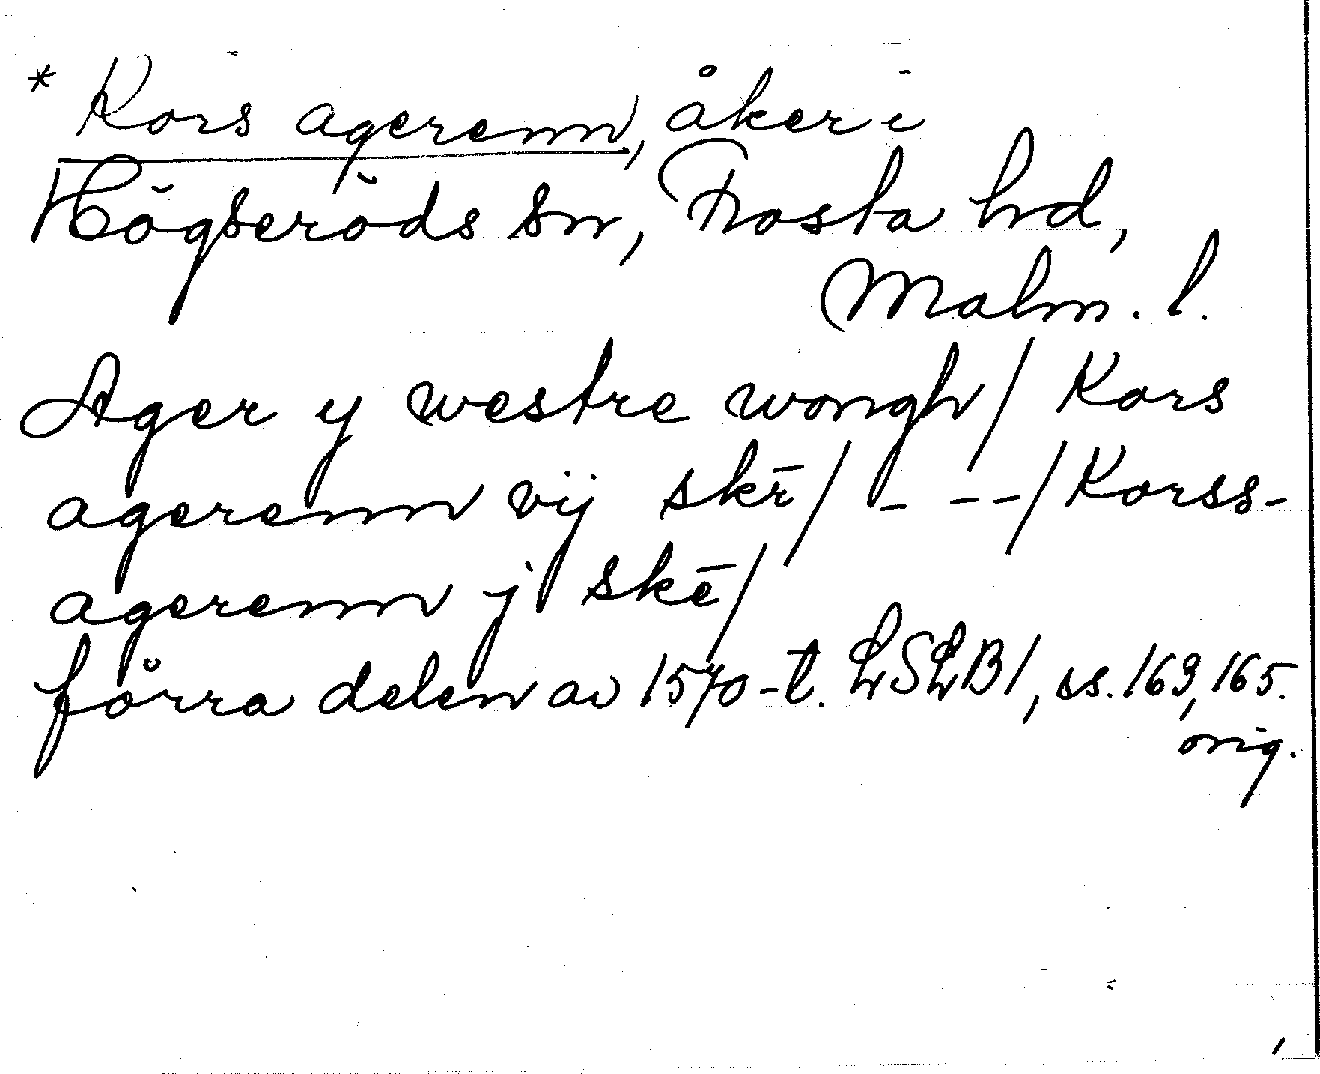 * Kors agerenn, åker i
Högseröds sn, Frosta hd,
Malm. l.
Ager y westre wongh/ Kors
agerenn vij skē/ - --/ Korss-
agerenn j skē/
förra delen av 1570-t. LSLB1, ss. 163, 165.
orig.